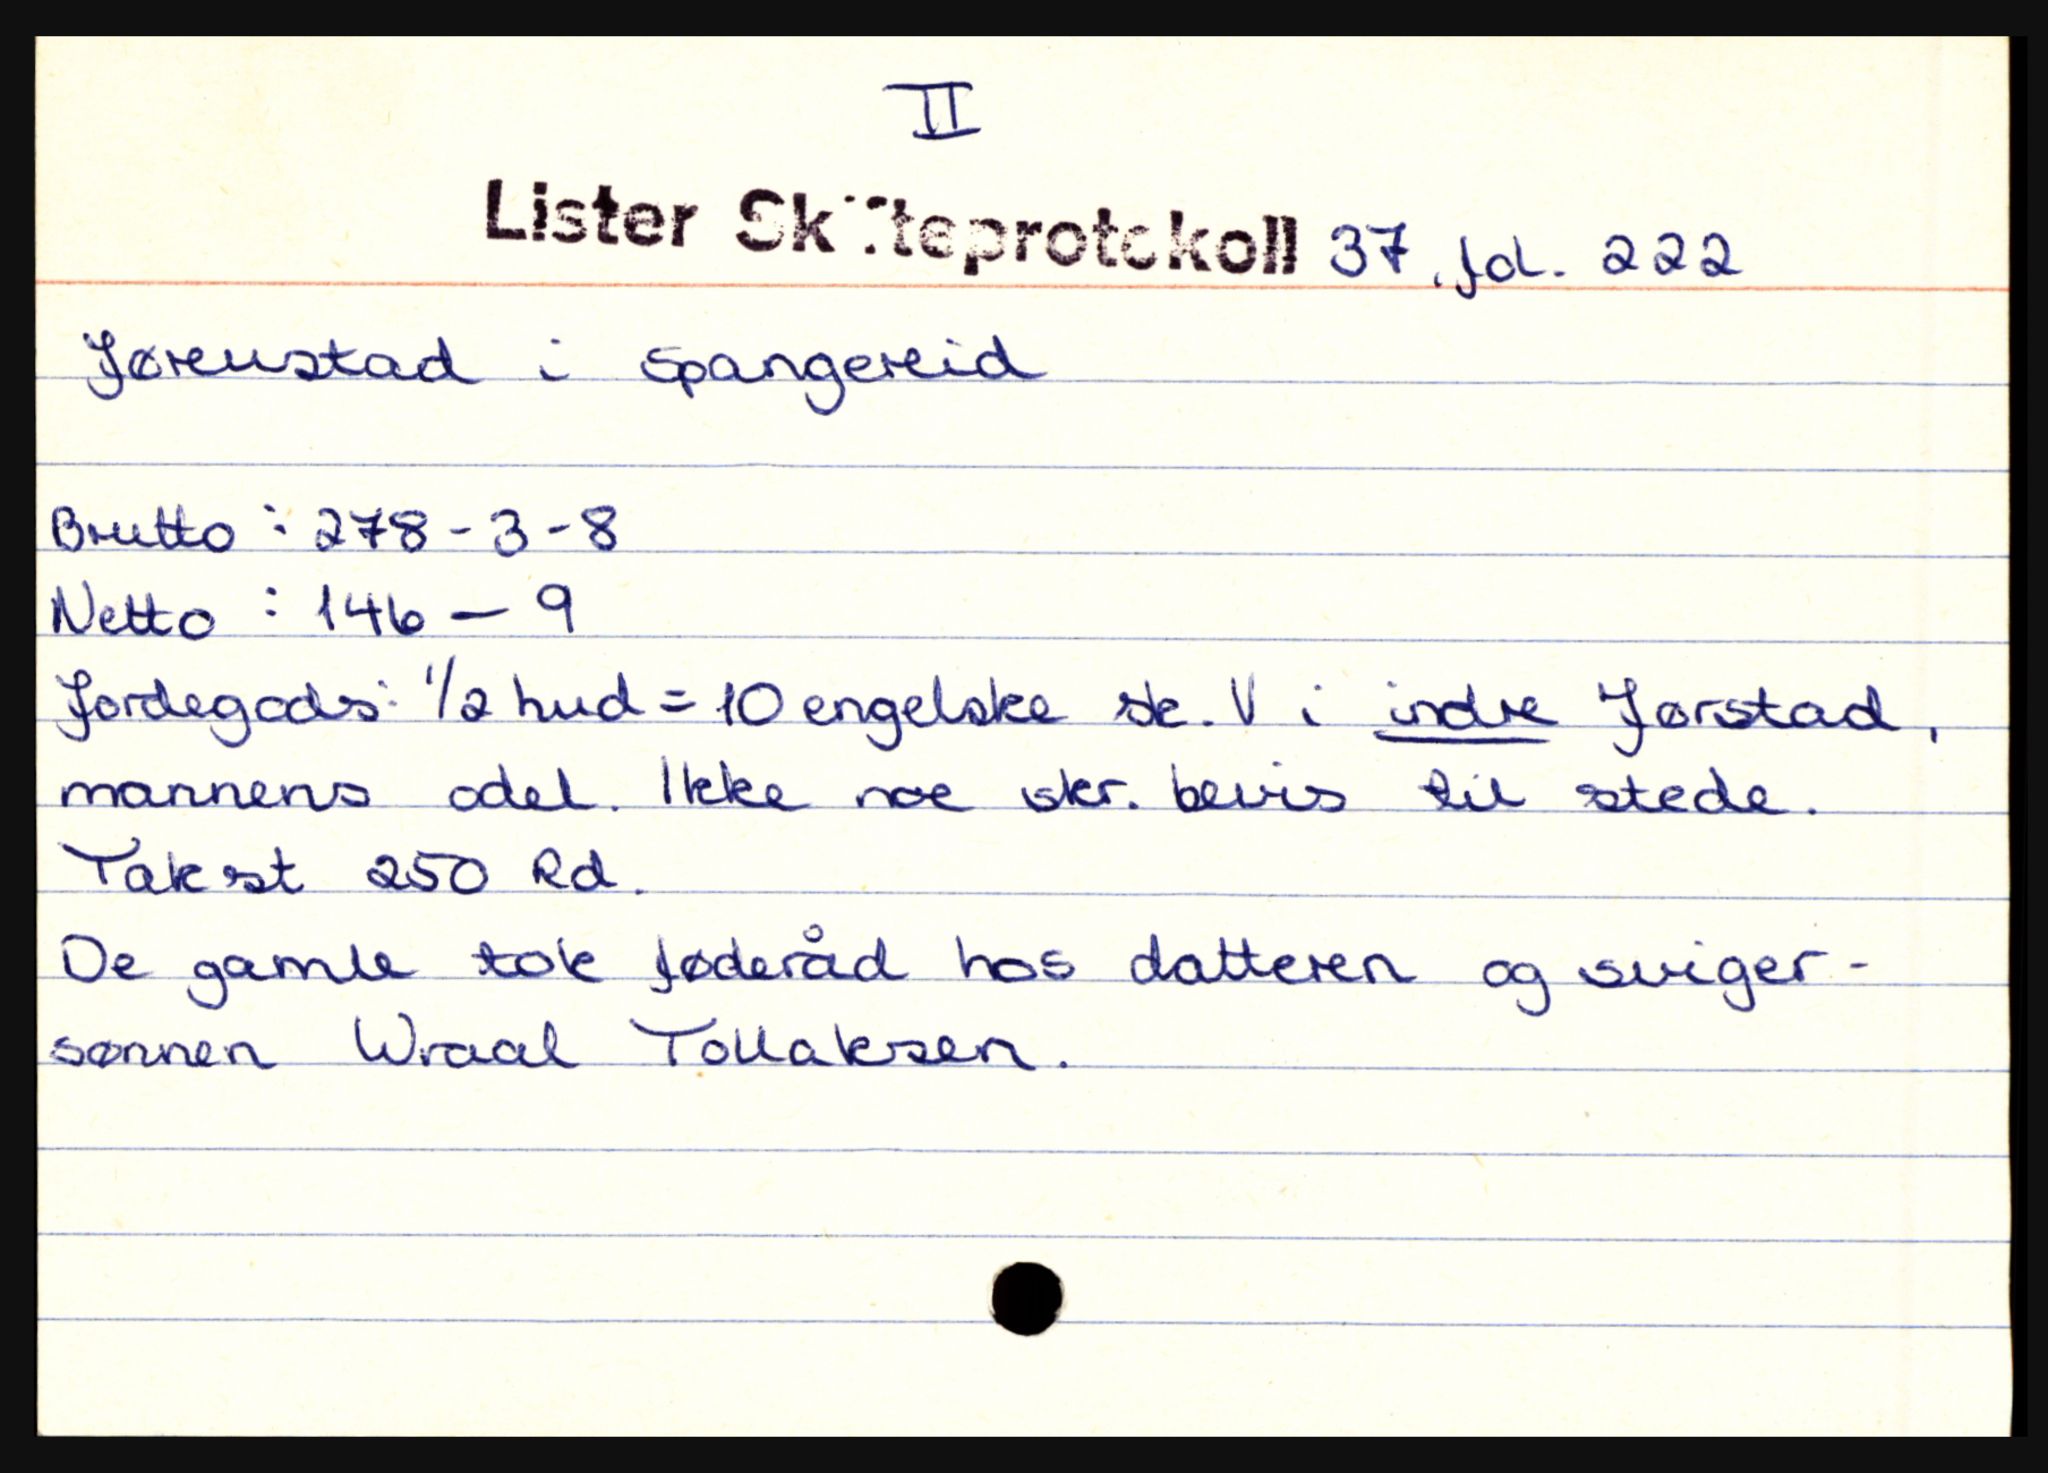 II
Lister Skifteprotokoll 37, fol. 222
Jørenstad i Spangereid
Brutto : 278 - 3 - 8
Netto : 146 — 9
Jordegods: 1/2 hud = 10 engelske sk. V i indre Jørstad,
mannens odel. Ikke noe skr. bevis til stede.
Takst 250 Rd.
De gamle tok føderåd hos datteren og sviger-
sønnen Wraal Tollaksen.